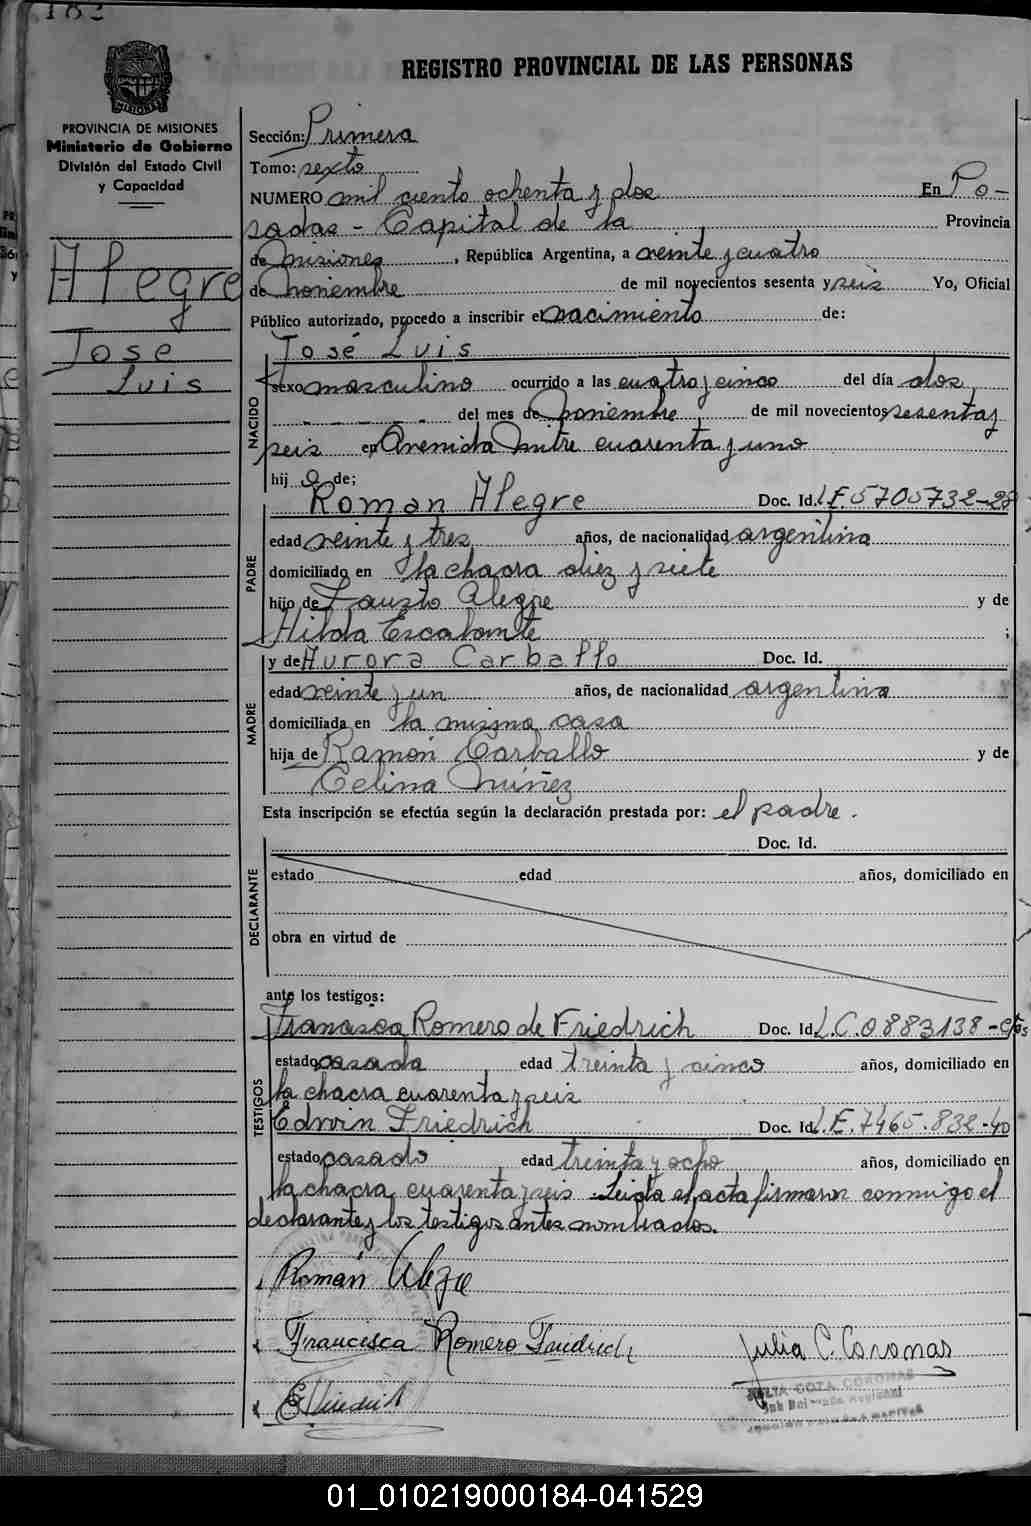 182
REGISTRO PROVINCIAL DE LAS PERSONAS
MISIONES
PROVINCIA DE MISIONES
Ministerio de Gobierno
División del Estado Civil
y Capacidad
Alegre
José
Luis
Sección: Primera
Tomo: sexto
NUMERO mil ciento ochenta y dos En Po-
sadas - Capital de la Provincia
de Misiones, República Argentina, a veinte y cuatro
de noviembre de mil novecientos sesenta y seis Yo, Oficial
Público autorizado, procedo a inscribir el nacimiento de:
José Luis
NACIDO
sexo masculino ocurrido a las cuatro y cinco del día dos
del mes de noviembre de mil novecientos sesenta y
seis en Avenida Mitre cuarenta y uno
hijo de;
Roman Alegre Doc. Id. L.E. 5705732-28
PADRE
edad veinte y tres años, de nacionalidad argentina
domiciliado en la chacra diez y siete
hijo de Fausto Alegre y de
Hilda Escalante ;
y de Aurora Carballo Doc. Id.
MADRE
edad veinte y un años, de nacionalidad argentina
domiciliada en la misma casa
hija de Ramón Carballo y de
Celina Núñez
Esta inscripción se efectúa según la declaración prestada por: el padre.
Doc. Id.
DECLARANTE
estado edad años, domiciliado en
obra en virtud de
ante los testigos:
Francisca Romero de Friedrich Doc. Id. L.C. 0883138-
TESTIGOS
estado casada edad treinta y cinco años, domiciliado en
la chacra cuarenta y seis
Edwin Friedrich Doc. Id. L.E. 7465.832-40
estado casado edad treinta y ocho años, domiciliado en
la chacra cuarenta y seis Leida el acta firmaron conmigo el
declarante y los testigos antes nombrados.
Román Alegre
Francisca Romero Friedrich
Julia C. Coronas
JULIA COTA CORONAS
01_010219000184-041529